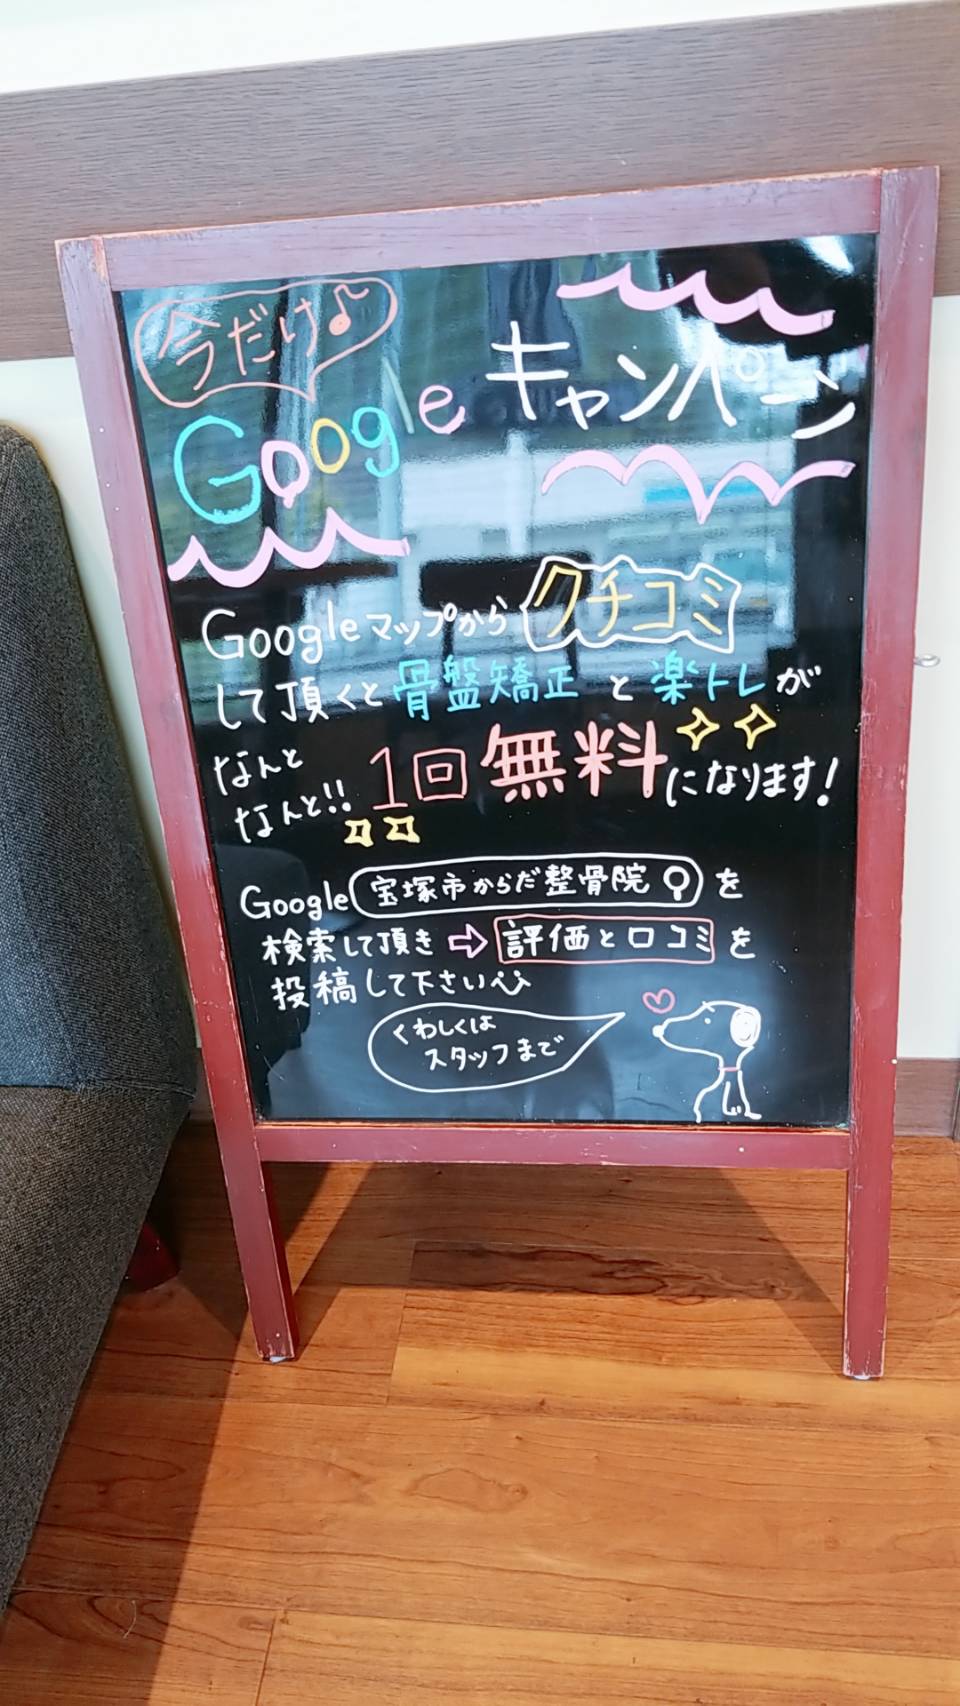 今だけ♪
Google キャンペーン
Googleマップから クチコミ
して頂くと 骨盤矯正 と 楽トレ が
なんと
なんと!! 1回 無料 になります!
Google 宝塚市からだ整骨院 を
検索して頂き ⇨ 評価と口コミ を
投稿して下さい
くわしくは
スタッフまで